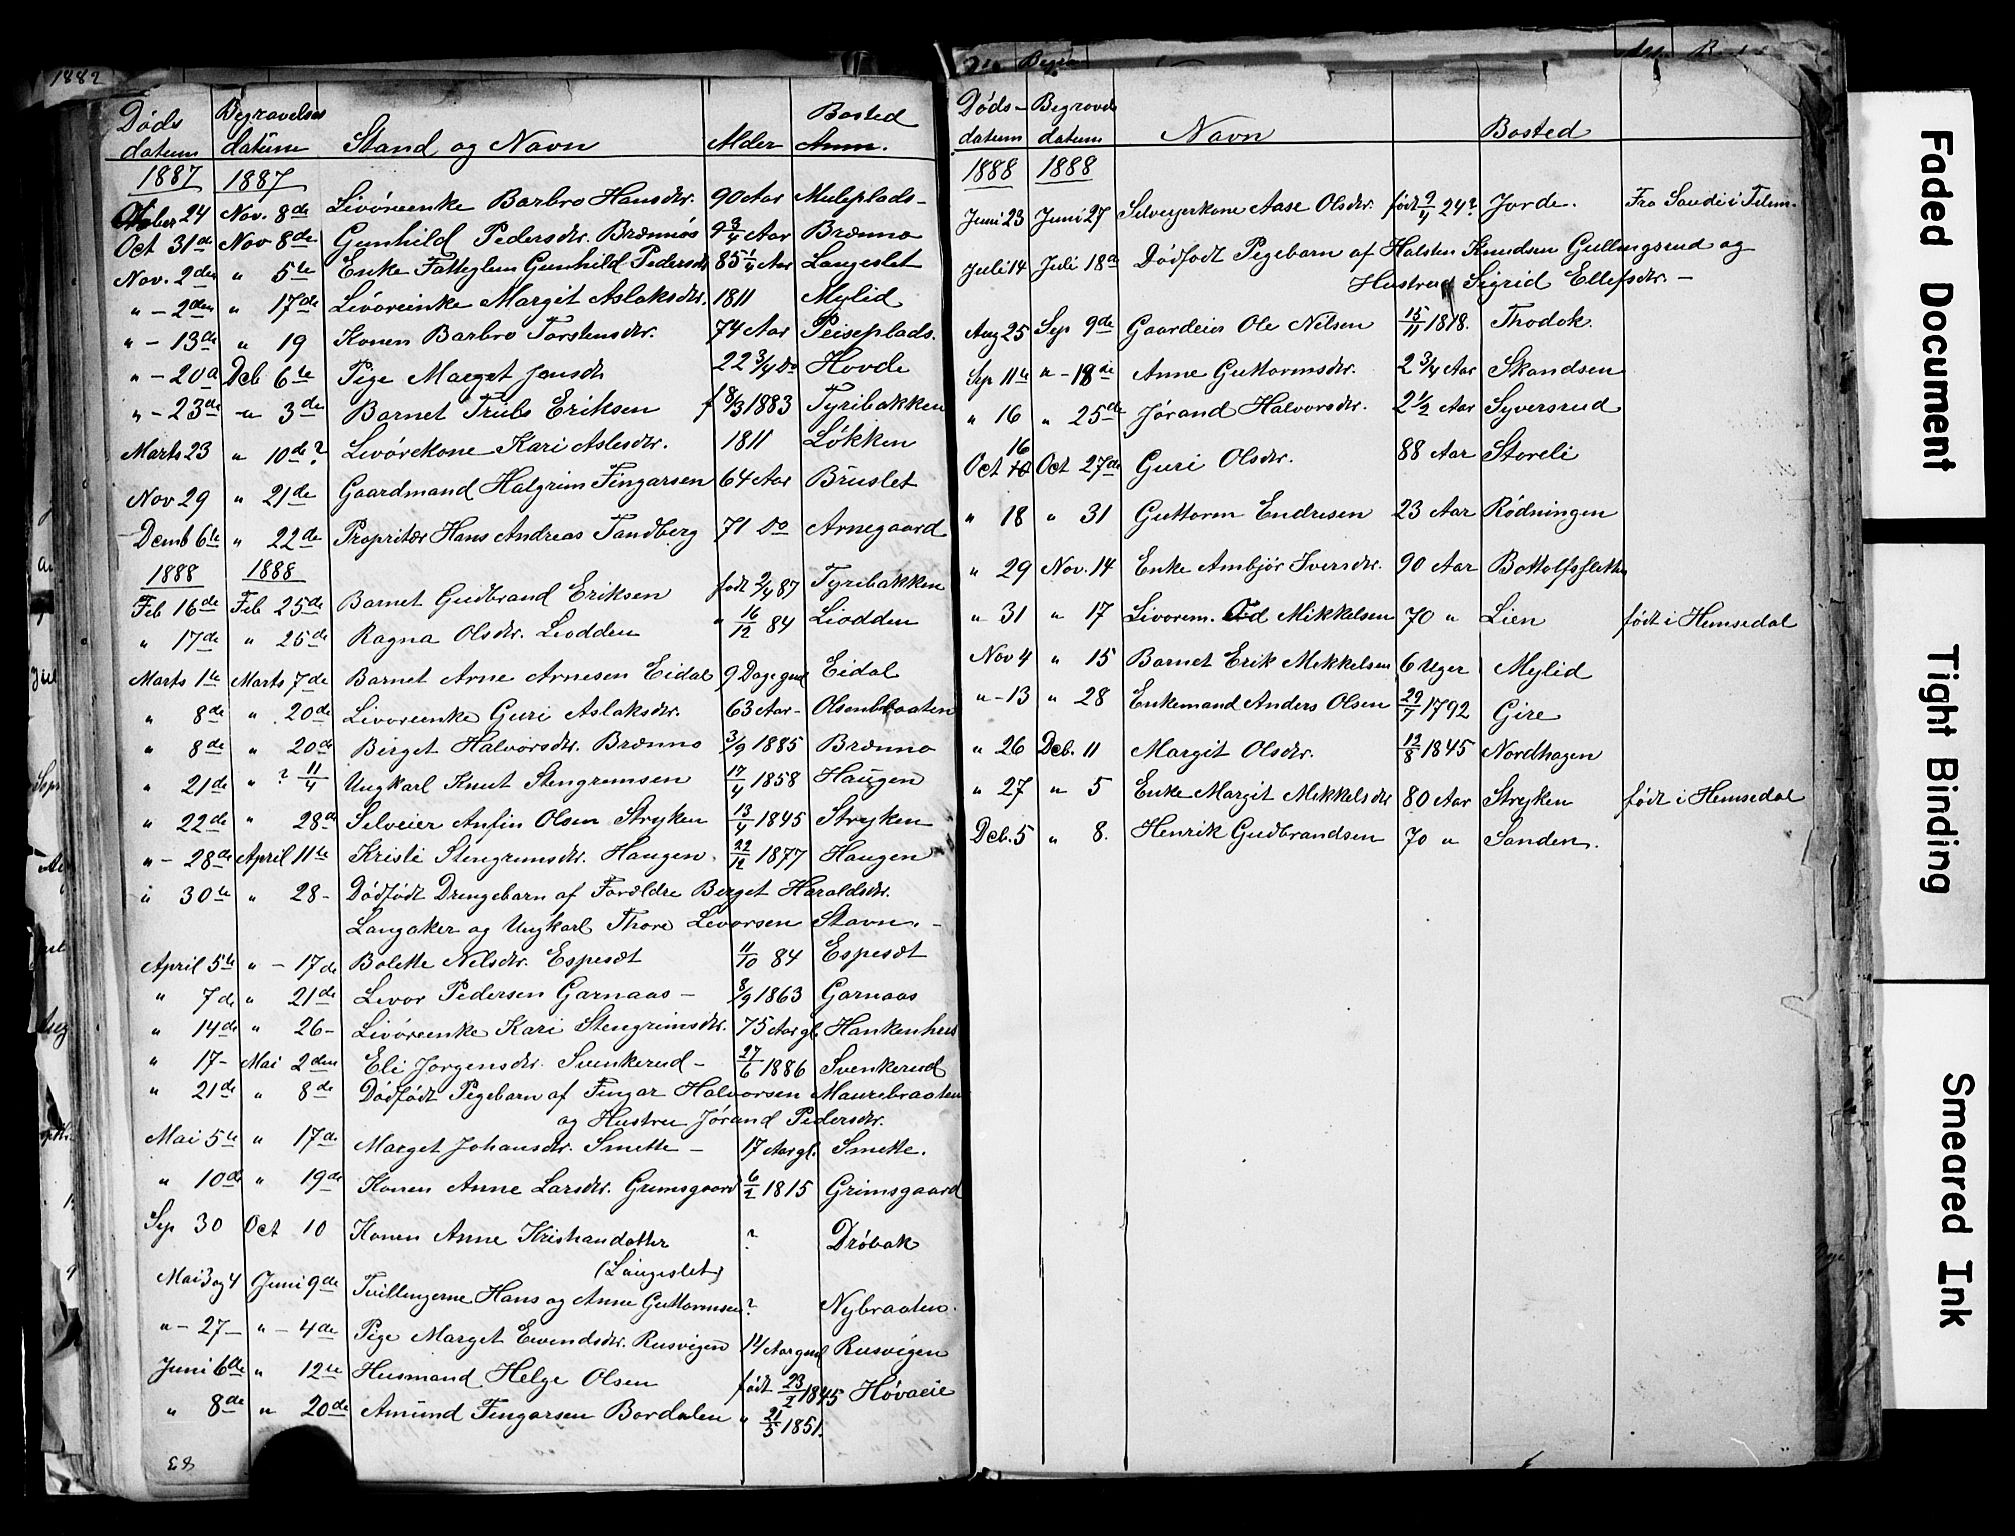 1882
Døds Begravelses Bosted
datum datum Stand og Navn Alder Anm.
1887 1887
October 24 Nov. 8de Livóreenke Barbro Hansdtr. 90 Aar Muleplads-
Oct 31de Nov 8de Gunhild Pedersdtr. Brænnos 9 3/4 Aar Brænno
Nov. 2den " 5te Enke Fatteglem Gunhild Pedersdtr 85 1/4 Aar Langeslet
" - 2den " 17de Livóreenke Margit Aslaksdtr. 1811 Mylid
" - 13de " 19 Konen Barbro Torstensdtr. 74 Aar Peiseplads.
" - 20de Dcb 6te Pige Marget Jensdtr 22 3/4 Do Hovde
" - 23de -" 3de Barnet Truls Eriksen f 8/3 1883 Tyribakken
Marts 23 " 10de? Livórekone Kari Aslesdtr. 1811 Løkken
Nov 29 " 21de Gaardmand Halgrim Fingarsen 64 Aar Bruslet
Decmb 6te " 22de Propritær Hans Andreas Tandberg 71 Do Arnegaard
1888 1888
Feb 16de Feb 25de Barnet Gudbrand Eriksen født 2/4 87 Tyribakken
" 17de " 25de Ragna Olsdtr. Liodden " 16/12 84 Liodden
Marts 1te Marts 7de Barnet Arne Arnesen Eidal 9 Dage gml Eidal
" 8de " 20de Livóreenke Guri Aslaksdtr. 63 Aar - Olsenbraaten
" 8de " 20de Birget Halvorsdtr. Brænno 3/9 1885 Brænno
" 21de " ? 11/4 Ungkarl Knut Stengrimsen 17/4 1858 Haugen
" 22de " 28de Selveier Anfin Olsen Stryken 13/4 1845 Stryken
" - 28de April 11te Kristi Stengrimsdtr. Haugen. 22/12 1877 Haugen
" 30te " 28- Dødfødt Drengebarn af Forældre Berget Haraldsdtr.
Langaker og Ungkarl Thore Levorsen Stavn. -
April 5te " - 17de Bolette Nelsdtr. Espesæt 11/10 84 Espesæt
" 7de " 21de Levor Pedersen Garnaas - 8/9 1863 Garnaas
" 14de " 26- Livóreenke Kari Stengrimsdtr. 75 Aar gl. Hankenhus
" 17- Mai 2den Eli Jorgensdtr. Svenkerud - 27/6 1886 Svenkerud
" 21de " 8de Dødfødt Pigebarn af Fingar Halvorsen Maurebraaten
og Hustru Jórand Pedersdtr.
Mai 5te " 17de Marget Johansdtr. Smette - 17 Aar gl. Smette.
" 10de " 19de Konen Anne Larsdtr. Grimsgaard 6/2 1815 Grimsgaard
Sep 30 Oct 10 Konen Anne Kristiandatter ? Drøbak
(Langeslet)
Mai 3 og 4 Juni 9de Tvillingerne Hans og Anne Guttormsen ? Nybraaten.
" - 27- " - 4de Pige Marget Eivendsdtr. Rusvigen 14 Aar gml Rusvigen
Juni 6te " 12te Husmand Helge Olsen født 23/2 1845 Høvaeie
" 8de " 20de Amund Fingarsen Bordalen " 21/5 1851.
83
Døds- Begravels
datum datum Navn Bosted
1888 1888
Juni 23 Juni 27 Selveyerkone Aase Olsdtr. født 9/4 24? Jorde. Fra Saude i Telem.
Juli 14 Juli 18de Dødfødt Pegebarn af Halsten Knudsen Gullingsrud og
Hustru Sigrid Ellefsdtr. -
Aug 25 Sep 9de Gaardeier Ole Nilsen 15/11 1818. Thodok.
Sep 11te " - 18de Anne Guttormsdtr. 2 3/4 Aar Skandsen
" 16 " 25de Jórand Halvorsdtr. 2 1/2 Aar Syversrud
Oct 16 Oct 27de Guri Olsdtr. 88 Aar Storeli
" 18 " 31 Guttorm Endresen 23 Aar Rødningen
" 29 Nov. 14 Enke Ambjór Iversdtr. 90 Aar Bottolfsslette
" 31 " 17 Livorem. Od Mikkelsen 70 " Lien født i Hemsedal
Nov 4 " 15 Barnet Erik Mekkelsen 6 Uger Mylid
" - 13 " 28 Enkemand Anders Olsen 29/7 1792 Gire
" 26 Dcb. 11 Margit Olsdtr. 12/8 1845 Nordhagen
" 27 " 5 Enke Margit Mikkelsdtr 80 Aar Stryken født i Hemsedal
Dcb. 5 " 8. Henrik Gudbrandsen 70 " Sanden.
Faded Document
Tight Binding
Smeared Ink